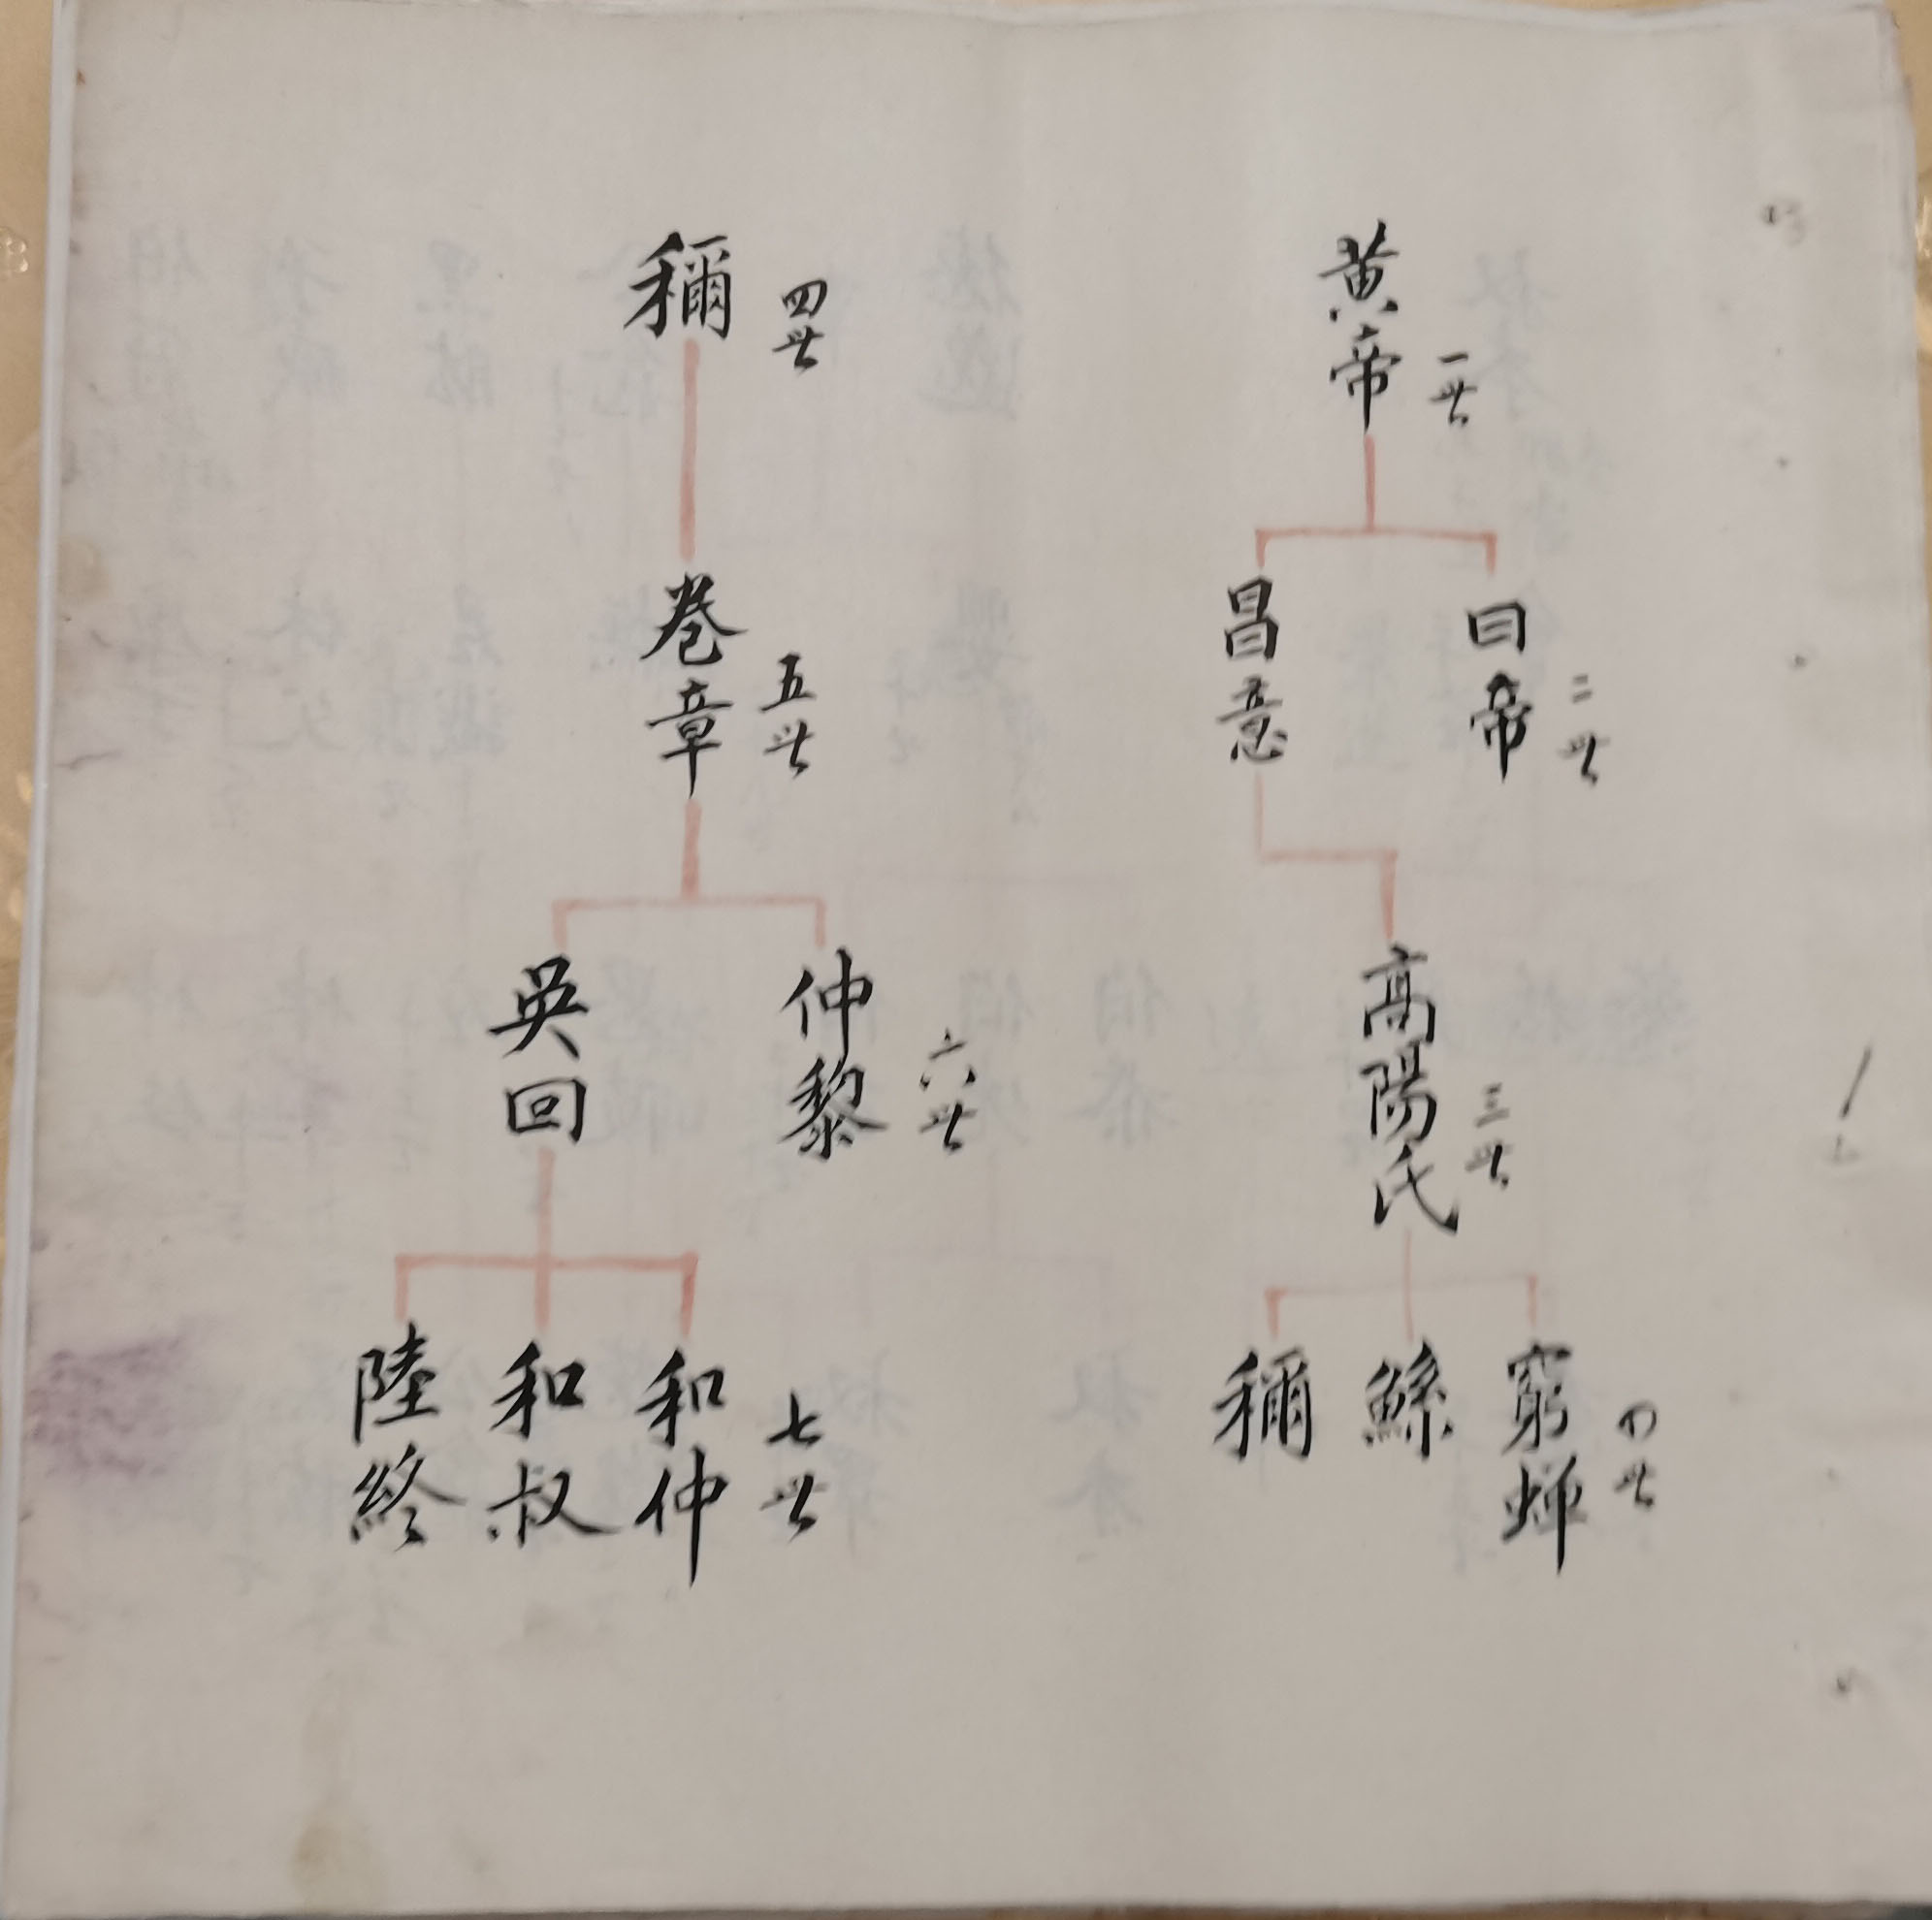 黃帝
一世
曰帝
二世
昌意
高陽氏
三世
窮蟬
四世
鯀
稱
稱
四世
卷章
五世
仲黎
六世
吳回
和仲
七世
和叔
陸終